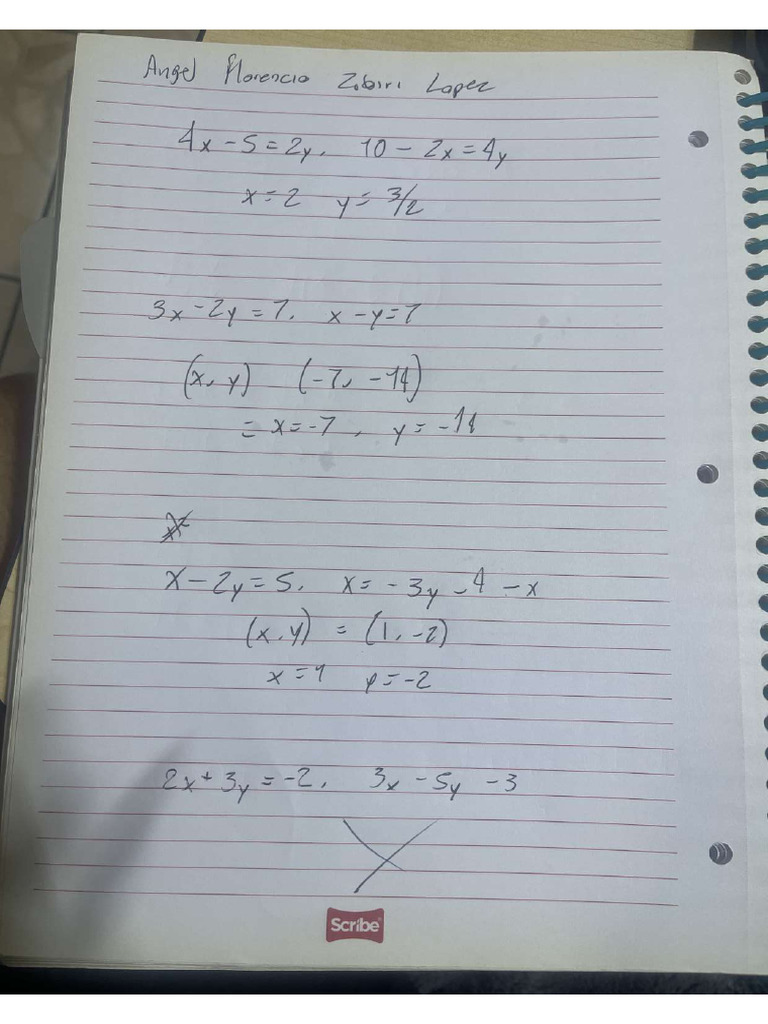 Angel Florencio Zobiri Lopez
4x - 5 = 2y, 10 - 2x = 4y
x = 2 y = 3/2
3x - 2y = 7, x - y = 7
(x, y) (-7, -14)
= x = -7, y = -14
x - 2y = 5, x = -3y - 4 - x
(x, y) = (1, -2)
x = 1 y = -2
2x + 3y = -2, 3x - 5y - 3
Scribe